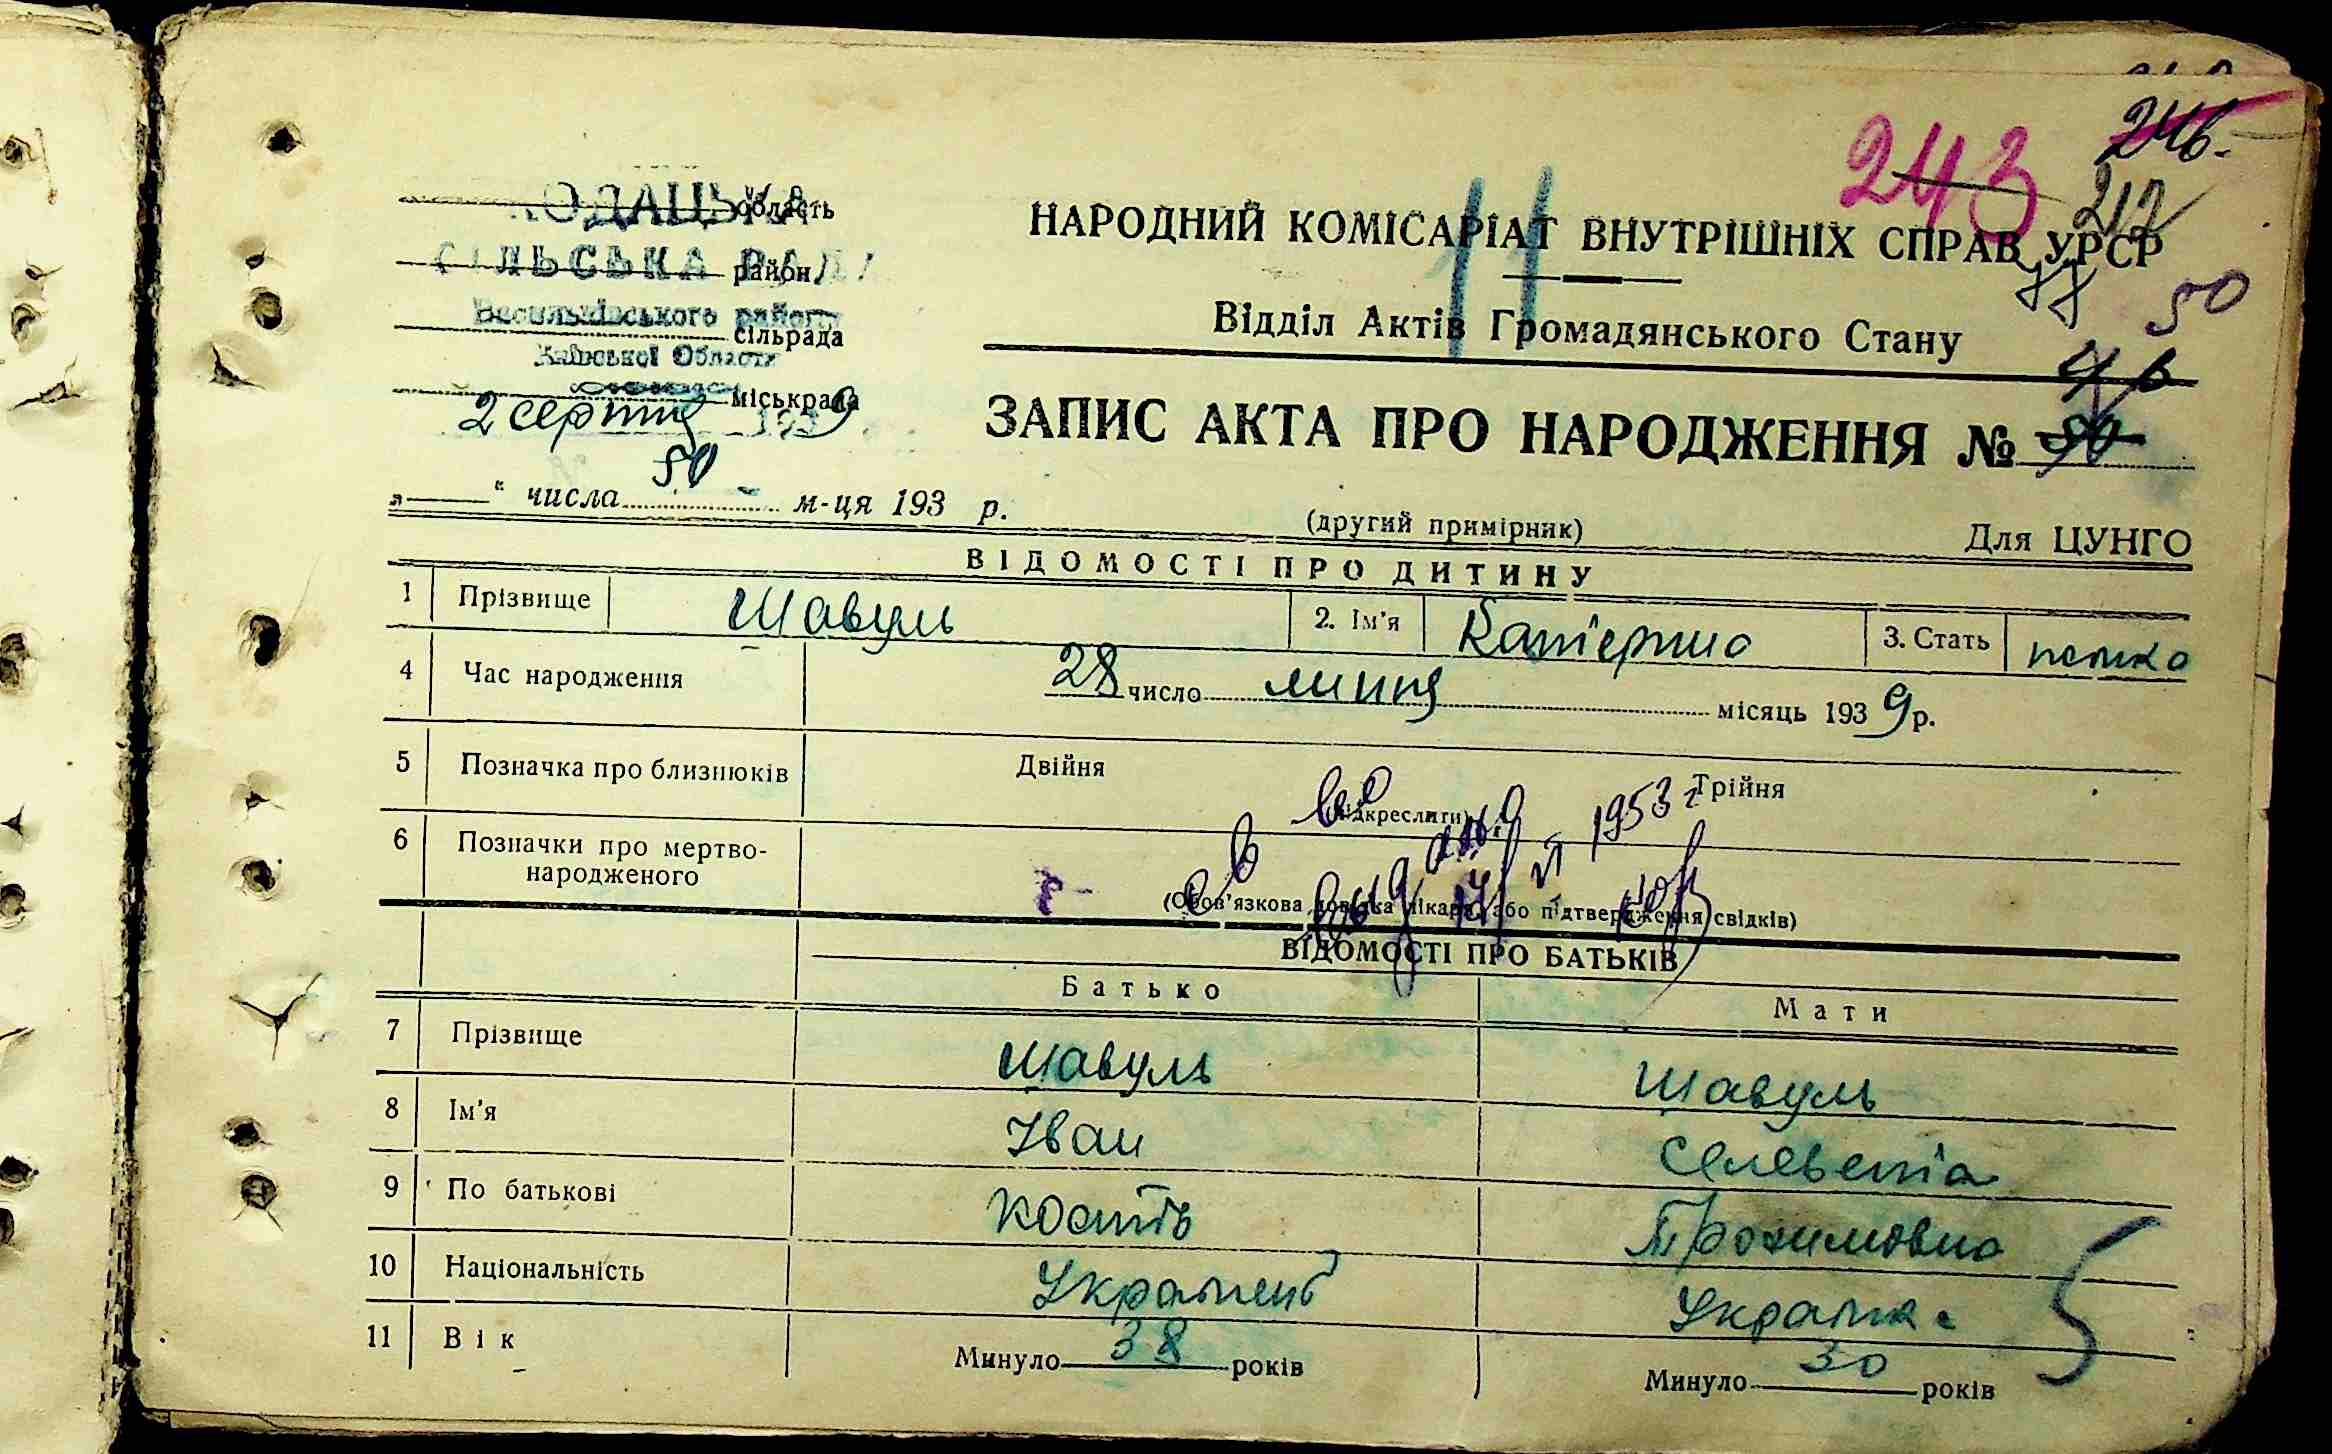 243 246.
217
область
СІЛЬСЬКА РАДА
район
Васильківського району
сільрада
Київської Області
міськрада
2 серпня 1939
50
„ “ числа м-ця 193 р.
НАРОДНИЙ КОМІСАРІАТ ВНУТРІШНІХ СПРАВ УРСР
50
Відділ Актів Громадянського Стану
46
ЗАПИС АКТА ПРО НАРОДЖЕННЯ № 50
(другий примірник) Для ЦУНГО
ВІДОМОСТІ ПРО ДИТИНУ
1 Прізвище Шавуль 2. Ім'я Катерина 3. Стать
4 Час народження 28 число липня місяць 1939 р.
5 Позначка про близнюків Двійня Трійня
(підкреслити) 1953 г
6 Позначки про мертво-
народженого
(Обов'язкова довідка лікаря або підтвердження свідків)
ВІДОМОСТІ ПРО БАТЬКІВ
Батько Мати
7 Прізвище Шавуль Шавуль
8 Ім'я Іван
9 По батькові Кость
10 Національність Українець Українка
11 Вік Минуло 38 років Минуло 30 років